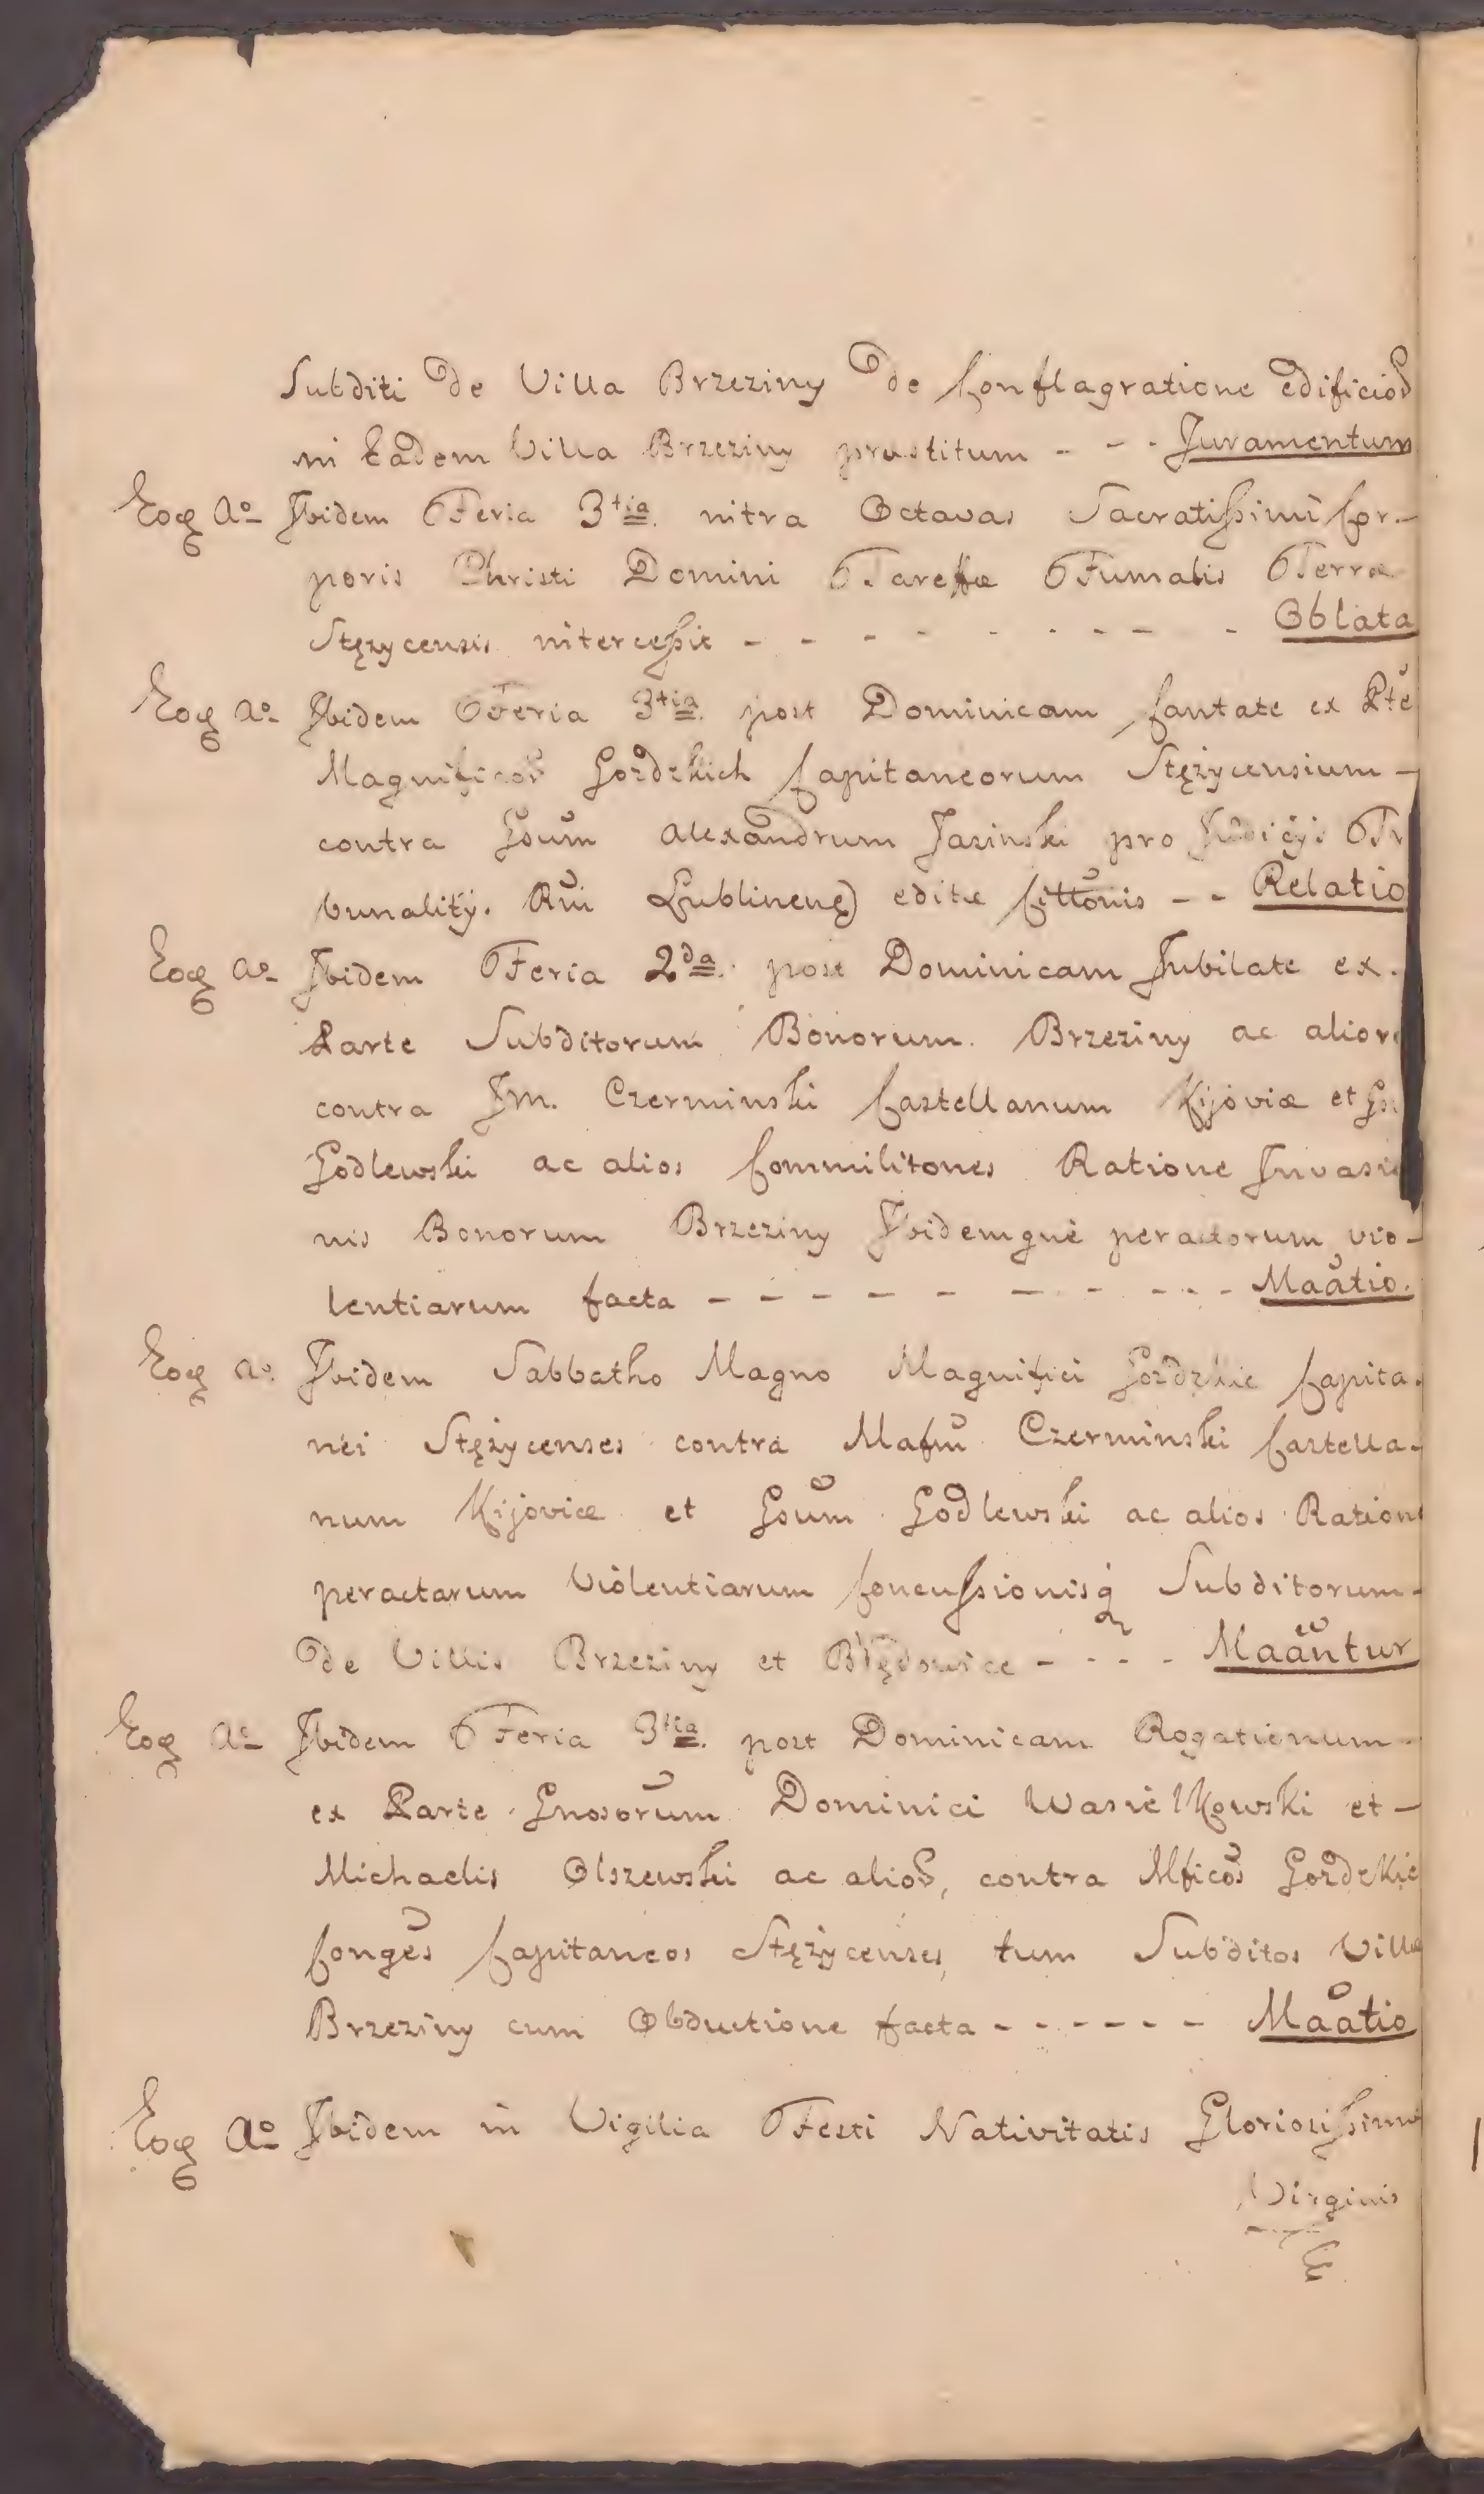 Subditi de Villa Brzeziny de Conflagratione edificior
in Eadem Villa Brzeziny prastitum - - - Juramentum
Eoq Ao Ibidem Feria 3tia intra Octavas Sacratissimi Cor-
poris Christi Domini Tareffæ Fumalis Terræ
Stężycensis intercessit - - - - - - - - - Oblata
Eoq Ao Ibidem Feria 3tia post Dominicam Cantate ex Pte
Magnificor Gozdzkich Capitaneorum Stężycensium -
contra Gsum Alexandrum Jasinski pro Judicijs Tr
bunalitÿ. Rni Lublinens editæ Cittōnis - - Relatio
Eoq Ao Ibidem Feria 2da post Dominicam Jubilate ex.
Parte Subditorum Bonorum Brzeziny ac alior
contra Jm. Czerminski Castellanum Kijoviæ et
Godlewski ac alios Commilitones Ratione Invasio
nis Bonorum Brzeziny Ibidemque peractorum vio-
lentiarum facta - - - - - - - - - Maatio.
Eoq Ao Ibidem Sabbatho Magno Magnifici Gozdzkie Capita-
nei Stężycenses contra Mafcum Czerminski Castella-
num Kijoviæ et Gsum Godlewski ac alios Ratione
peractarum Violentiarum Concussionisq Subditorum-
de Villis Brzeziny et Błędowice - - - - Maāntur
Eoq Ao Ibidem Feria 3tia post Dominicam Rogationum -
ex Parte Gnosorum Dominici Wasielkowski et -
Michaelis Olszewski ac alior, contra Mficos Gozdzkie
Conges Capitaneos Stężycenses, tum Subditos Villæ
Brzeziny cum Obductione facta - - - - - - Maatio
Eoq Ao Ibidem in Vigilia Festi Nativitatis Gloriosissimæ
Virginis